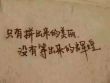 只有拼出来的美丽
没有等出来的辉煌